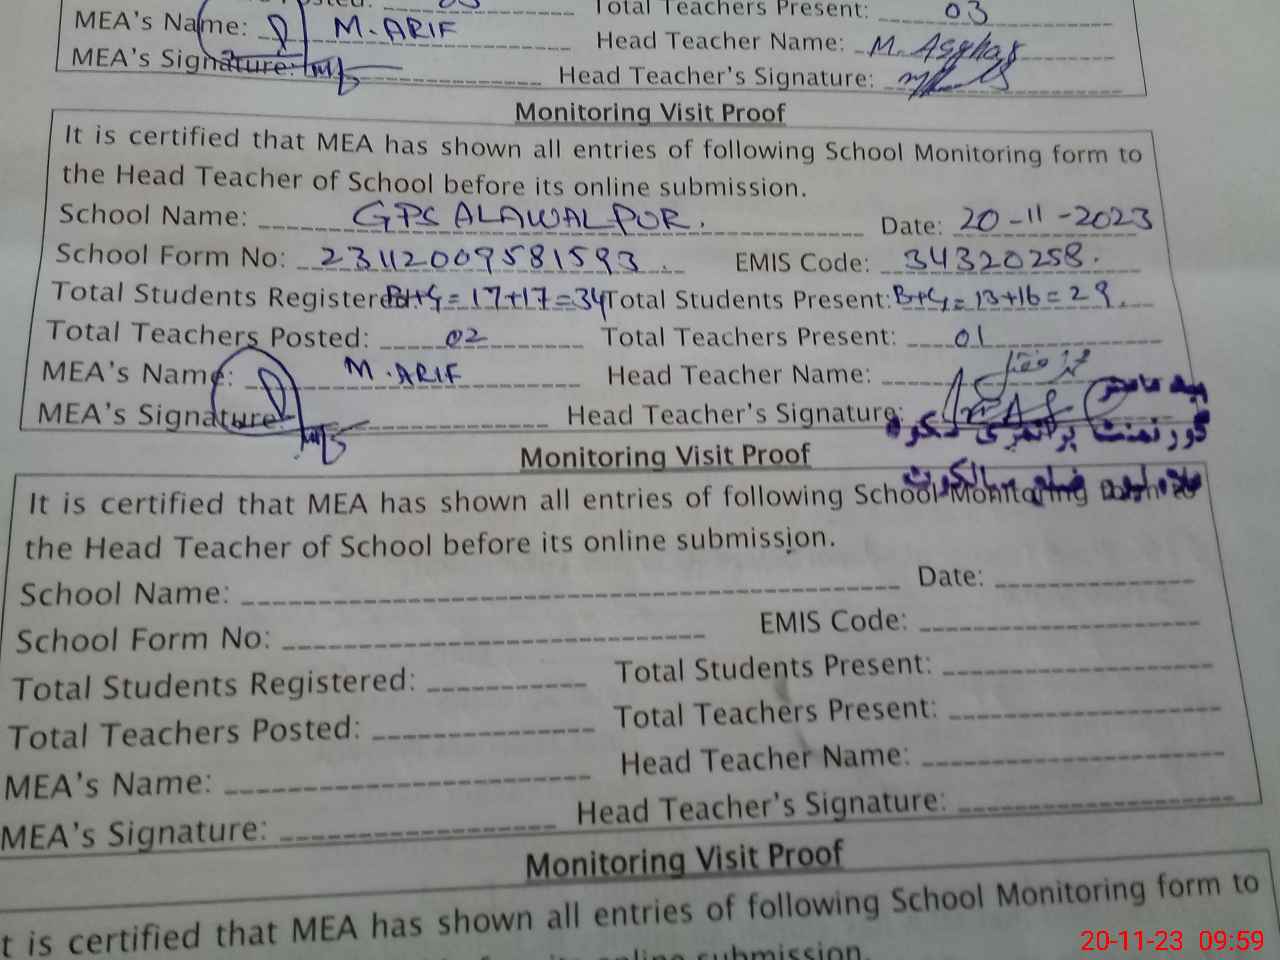 Total Teachers Present: 03
MEA's Name: M. ARIF Head Teacher Name: M. Asghar
MEA's Signature: Head Teacher's Signature:
Monitoring Visit Proof
It is certified that MEA has shown all entries of following School Monitoring form to
the Head Teacher of School before its online submission.
School Name: GPS ALAWALPUR. Date: 20-11-2023
School Form No: 23112009581593. EMIS Code: 34320258.
Total Students Registered: B+G=17+17=34 Total Students Present: B+G=13+16=29.
Total Teachers Posted: 02 Total Teachers Present: 01
MEA's Name: M. ARIF Head Teacher Name:
MEA's Signature: Head Teacher's Signature:
ہیڈ ماسٹر
گورنمنٹ پرائمری
Monitoring Visit Proof
ضلع سیالکوٹ
It is certified that MEA has shown all entries of following School Monitoring
the Head Teacher of School before its online submission.
School Name: Date:
School Form No: EMIS Code:
Total Students Registered: Total Students Present:
Total Teachers Posted: Total Teachers Present:
MEA's Name: Head Teacher Name:
MEA's Signature: Head Teacher's Signature:
Monitoring Visit Proof
t is certified that MEA has shown all entries of following School Monitoring form to
online submission.
20-11-23 09:59